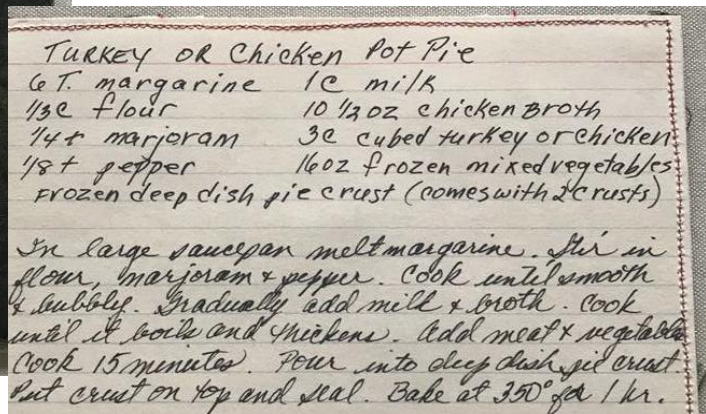 TURKEY OR Chicken Pot Pie
6 T. margarine 1c milk
1/3c flour 10 1/2 oz chicken Broth
1/4 t marjoram 3c cubed turkey or chicken
1/8 t pepper 16oz frozen mixed vegetables
Frozen deep dish pie crust (comes with 2 crusts)
In large saucepan melt margarine. Stir in
flour, marjoram & pepper. Cook until smooth
& bubbly. Gradually add milk & broth. Cook
until it boils and thickens. Add meat & vegetables
Cook 15 minutes. Pour into deep dish pie crust.
Put crust on top and seal. Bake at 350° for 1 hr.